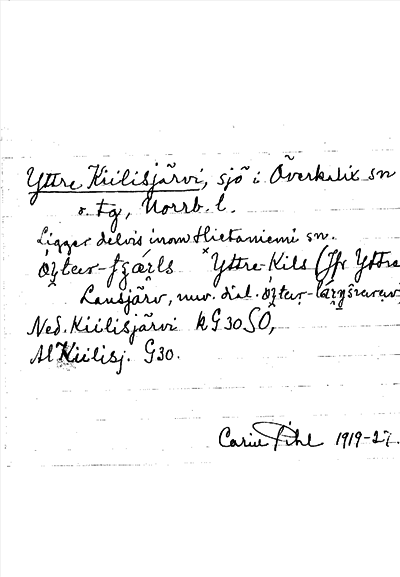 Yttre Kiilisjärvi, sjö i Överkalix sn
o. tg, Norrb. l.
Ligger delvis inom Hietaniemi sn.
ˣYttre-Kils (Jfr Yttre
Lansjärv, nuv. dial.
Ned. Kiilisjärvi kG30SO,
Al Kiilisj. G30.
Carin Pihl 1919-27.